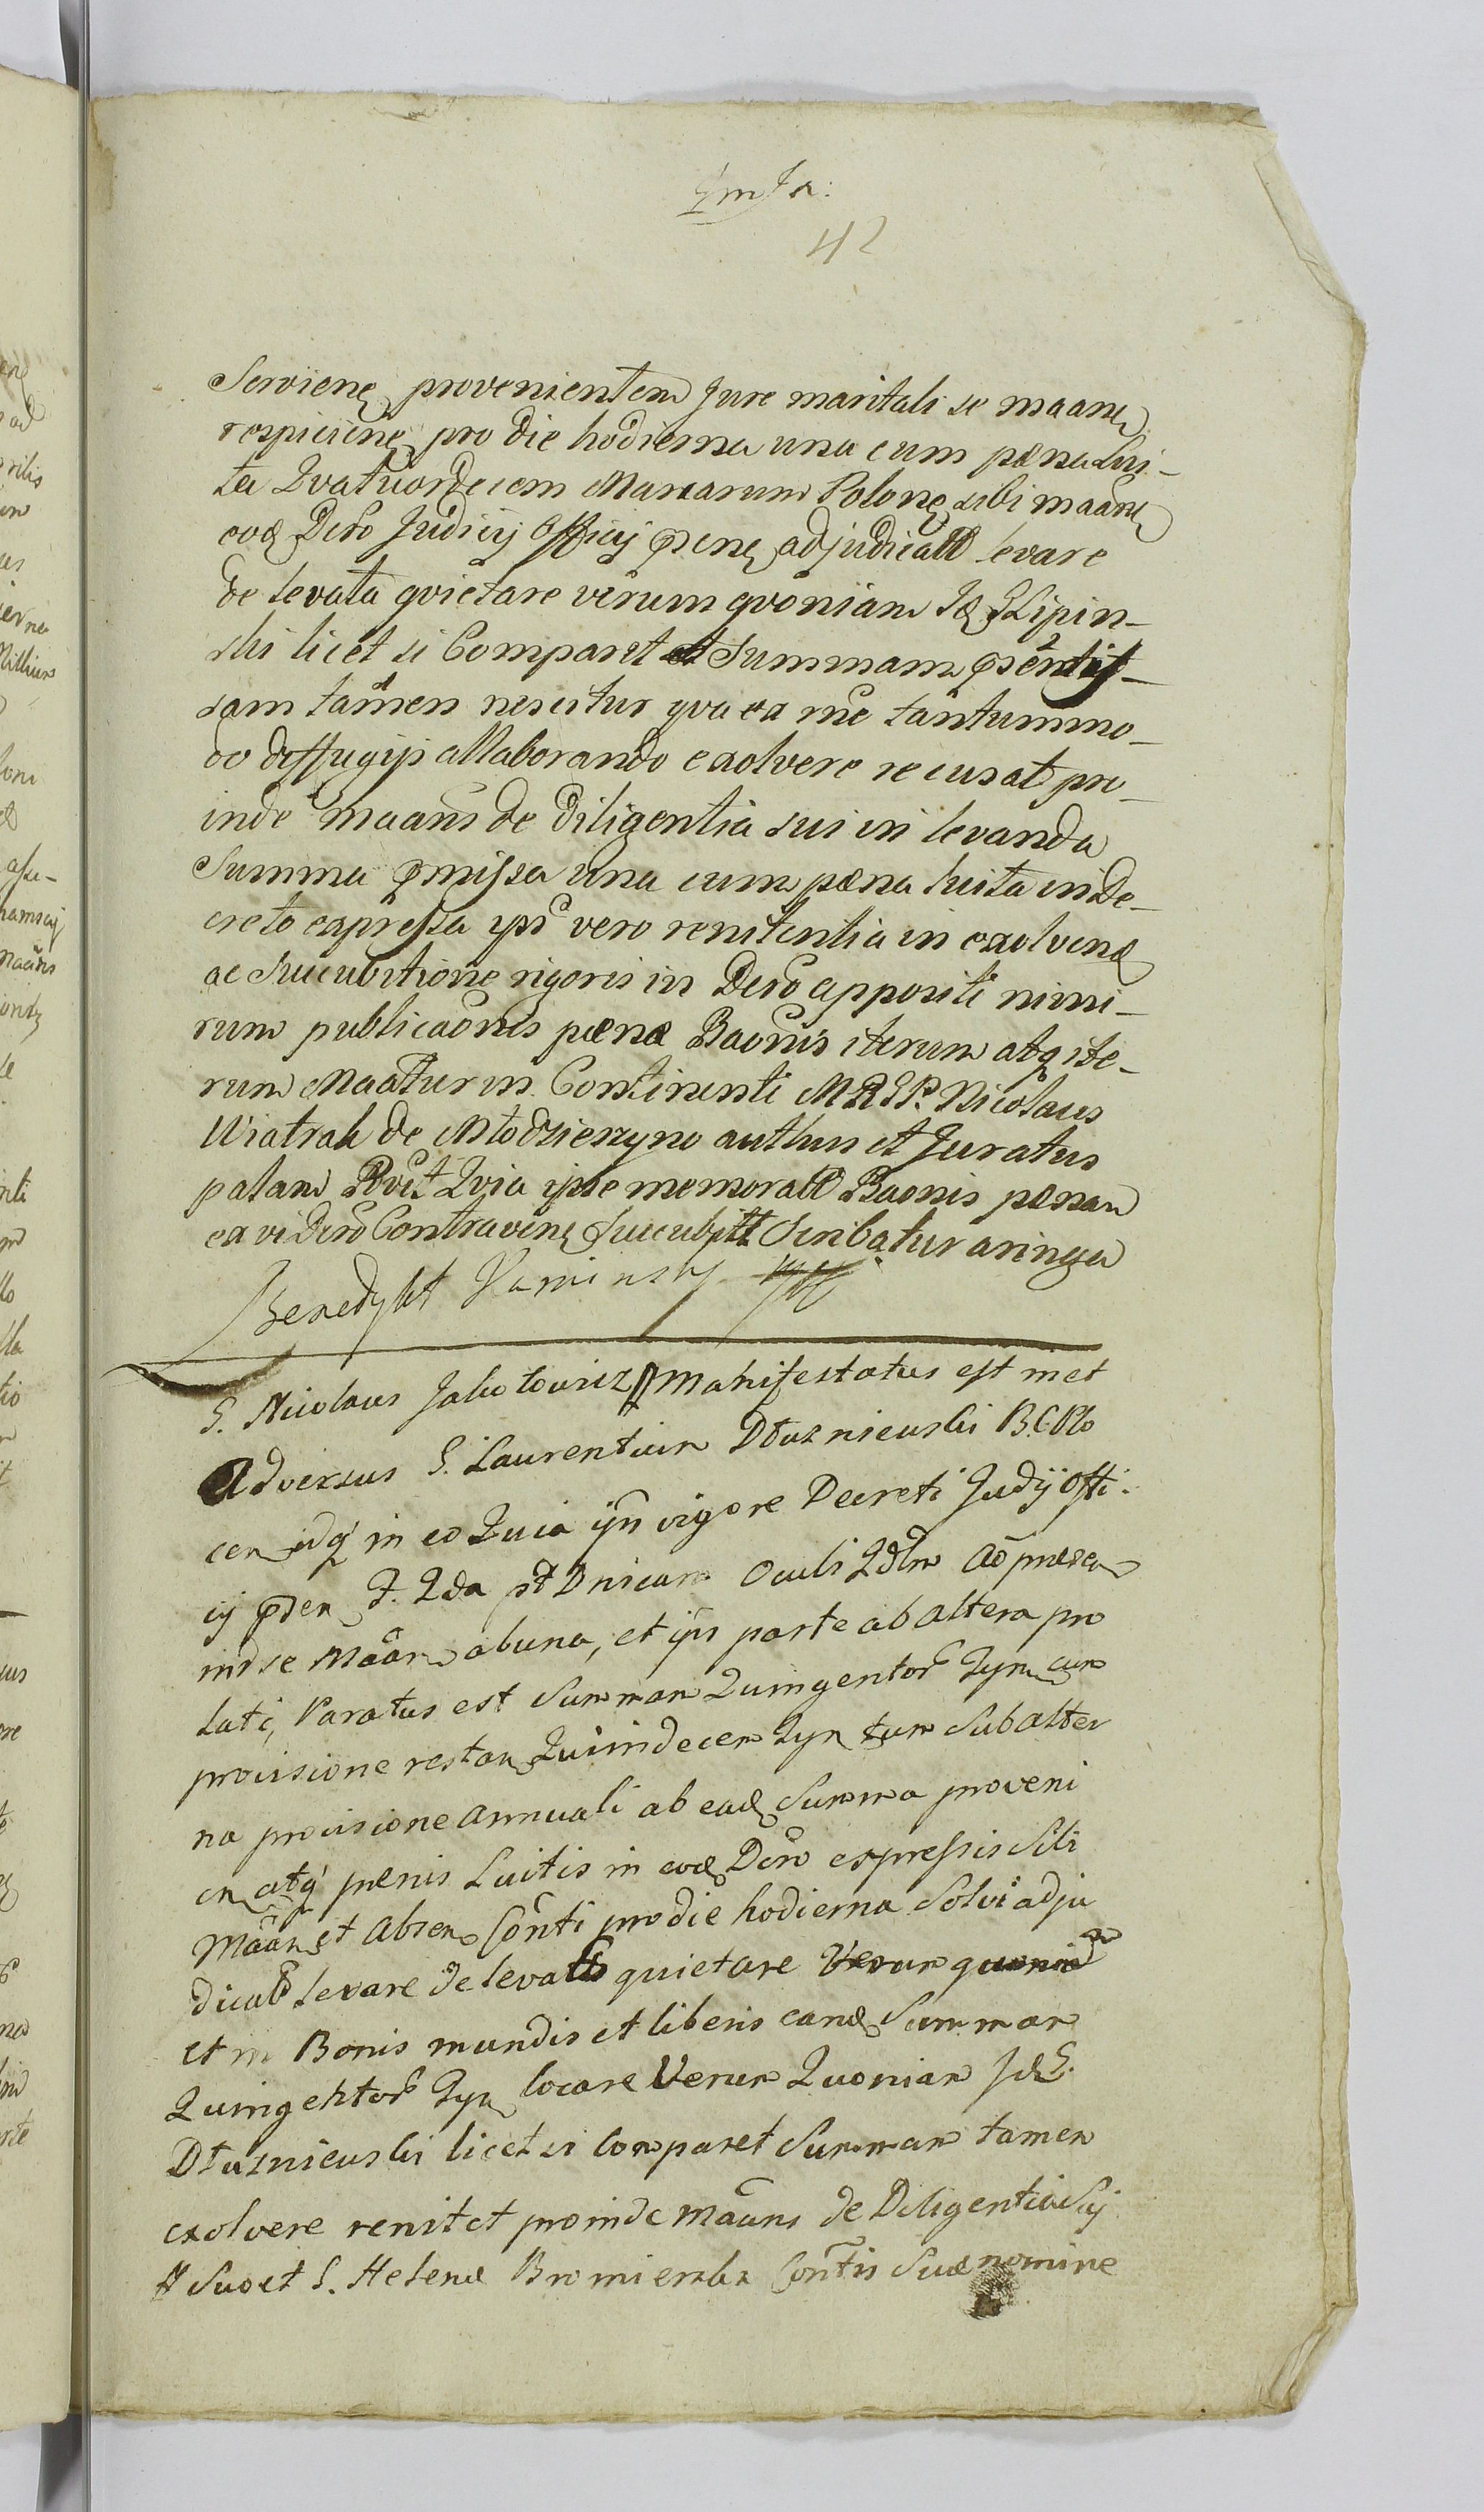 42
Serviene provenientem Jure maritali se maane
respiciene pro die hodierna una cum pæna Lui-
ta Qvatuordecem Marcarum Polone sibi maane
eod Dcro Judicij Officij pene adjudicatt levare
de levata qvietare verum qvoniam Id G Lipin-
ski licet si Comparet et Summam
sam tamen nescitur qva ea rne tantummo-
do diffugijs allaborando exolvere recusat pro-
inde maans de Diligentia sui in levanda
Summa pmissa una cum pæna luita in De-
creto expressa ipsi vero renitentia in exolvend
ac Succubitione rigoris in Dcro appositi nimi-
rum publicaonis pænæ Baonis iterum atq ite-
rum Maatur in Continenti MRGP. Nicolaus
Wiatrak de Młodzieszyno authus et Juratus
palam Rvit Qvia ipse memoratt Baonis pænam
ex vi Dcro Contravene Succubitt Scribatur aringa
Benedykt Kaminsky
G. Nicolaus Jakutowicz # Manifestatus est met
Adversus G. Laurentium Dłuzniewski B.C.Plo
cen idq in eo Quia ijn vigore Decreti Judij Offi-
cij pden F. 2da pt Dnicam Oculi Qdlm ad præsen
ind se Maan ab una, et ijn parte ab altera pro
lati, Paratus est Summam Quingentor Tyn cum
provisione restan Quindecem Tyn tum Sub alter
na provisione annuali ab ead Summa proveni
en atq pænis Luitis in eod Dcro expressis Sibi
Maan et Absen Conti pro die hodierna Solvi adju
dicatt levare de levatis quietare Verum quoniam
et in Bonis mundis et liberis eand Summam
Quingentor Tyn locare Verum Quoniam Id G.
Dłuzniewski licet si Comparet Summam tamen
exolvere renitet proinde Maans de Diligentia Sui
# Suo et G. Helenæ Bromierska Contis Suæ nomine